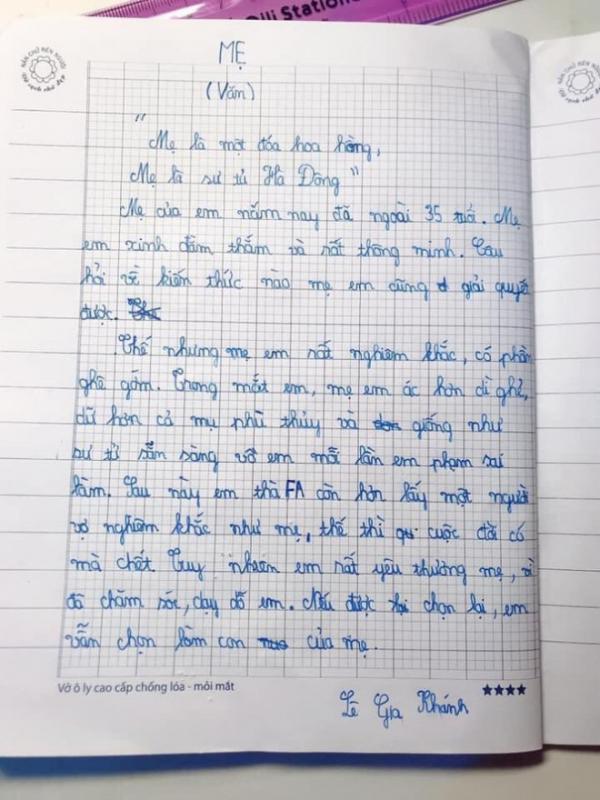 Olli Station
NẮN CHỮ NÊN NGƯỜI
MẸ
(Văn)
"Mẹ là một đóa hoa hồng,
Mẹ là sư tử Hà Đông"
Mẹ của em năm nay đã ngoài 35 tuổi. Mẹ
em xinh đằm thắm và rất thông minh. Câu
hỏi về kiến thức nào mẹ em cũng giải quyết
được.
Thế nhưng mẹ em rất nghiêm khắc, có phần
ghê gớm. Trong mắt em, mẹ em ác hơn dì ghẻ,
dữ hơn cả mụ phù thủy và giống như
sư tử sẵn sàng vồ em mỗi lần em phạm sai
lầm. Sau này em thà FA còn hơn lấy một người
vợ nghiêm khắc như mẹ, thế thì cuộc đời có
mà chết. Tuy nhiên em rất yêu thương mẹ, vì
đã chăm sóc, dạy dỗ em. Nếu được chọn lại, em
vẫn chọn làm con của mẹ.
Vở ô ly cao cấp chống lóa - mỏi mắt
★★★★
Lê Gia Khánh